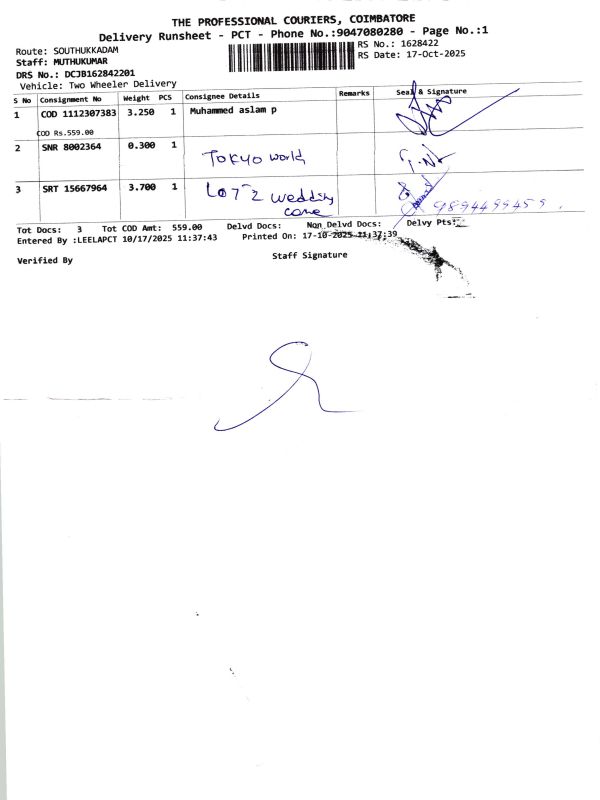 THE PROFESSIONAL COURIERS, COIMBATORE
Delivery Runsheet - PCT - Phone No.:9047080280 - Page No.:1
Route: SOUTHUKKADAM
RS No.: 1628422
Staff: MUTHUKUMAR
RS Date: 17-Oct-2025
DRS No.: DCJB162842201
Vehicle: Two Wheeler Delivery
S No Consignment No Weight PCS Consignee Details Remarks Seal & Signature
1 COD 1112307383 3.250 1 Muhammed aslam p
COD Rs.559.00
2 SNR 8002364 0.300 1
Tokyo world
3 SRT 15667964 3.700 1
wedding
9894499455
Tot Docs: 3 Tot COD Amt: 559.00 Delvd Docs: Non Delvd Docs: Delvy Pts:
Entered By :LEELAPCT 10/17/2025 11:37:43 Printed On: 17-10-2025 11:37:39
Verified By
Staff Signature